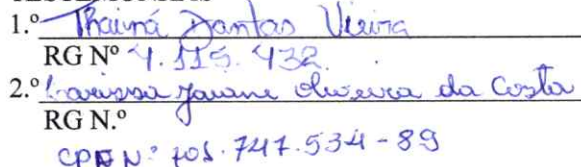 1.º Thainá Dantas Vieira
RG Nº 4.115.432
2.º Larissa Jaiane Oliveira da Costa
RG N.º
CPF Nº 701.747.534-89